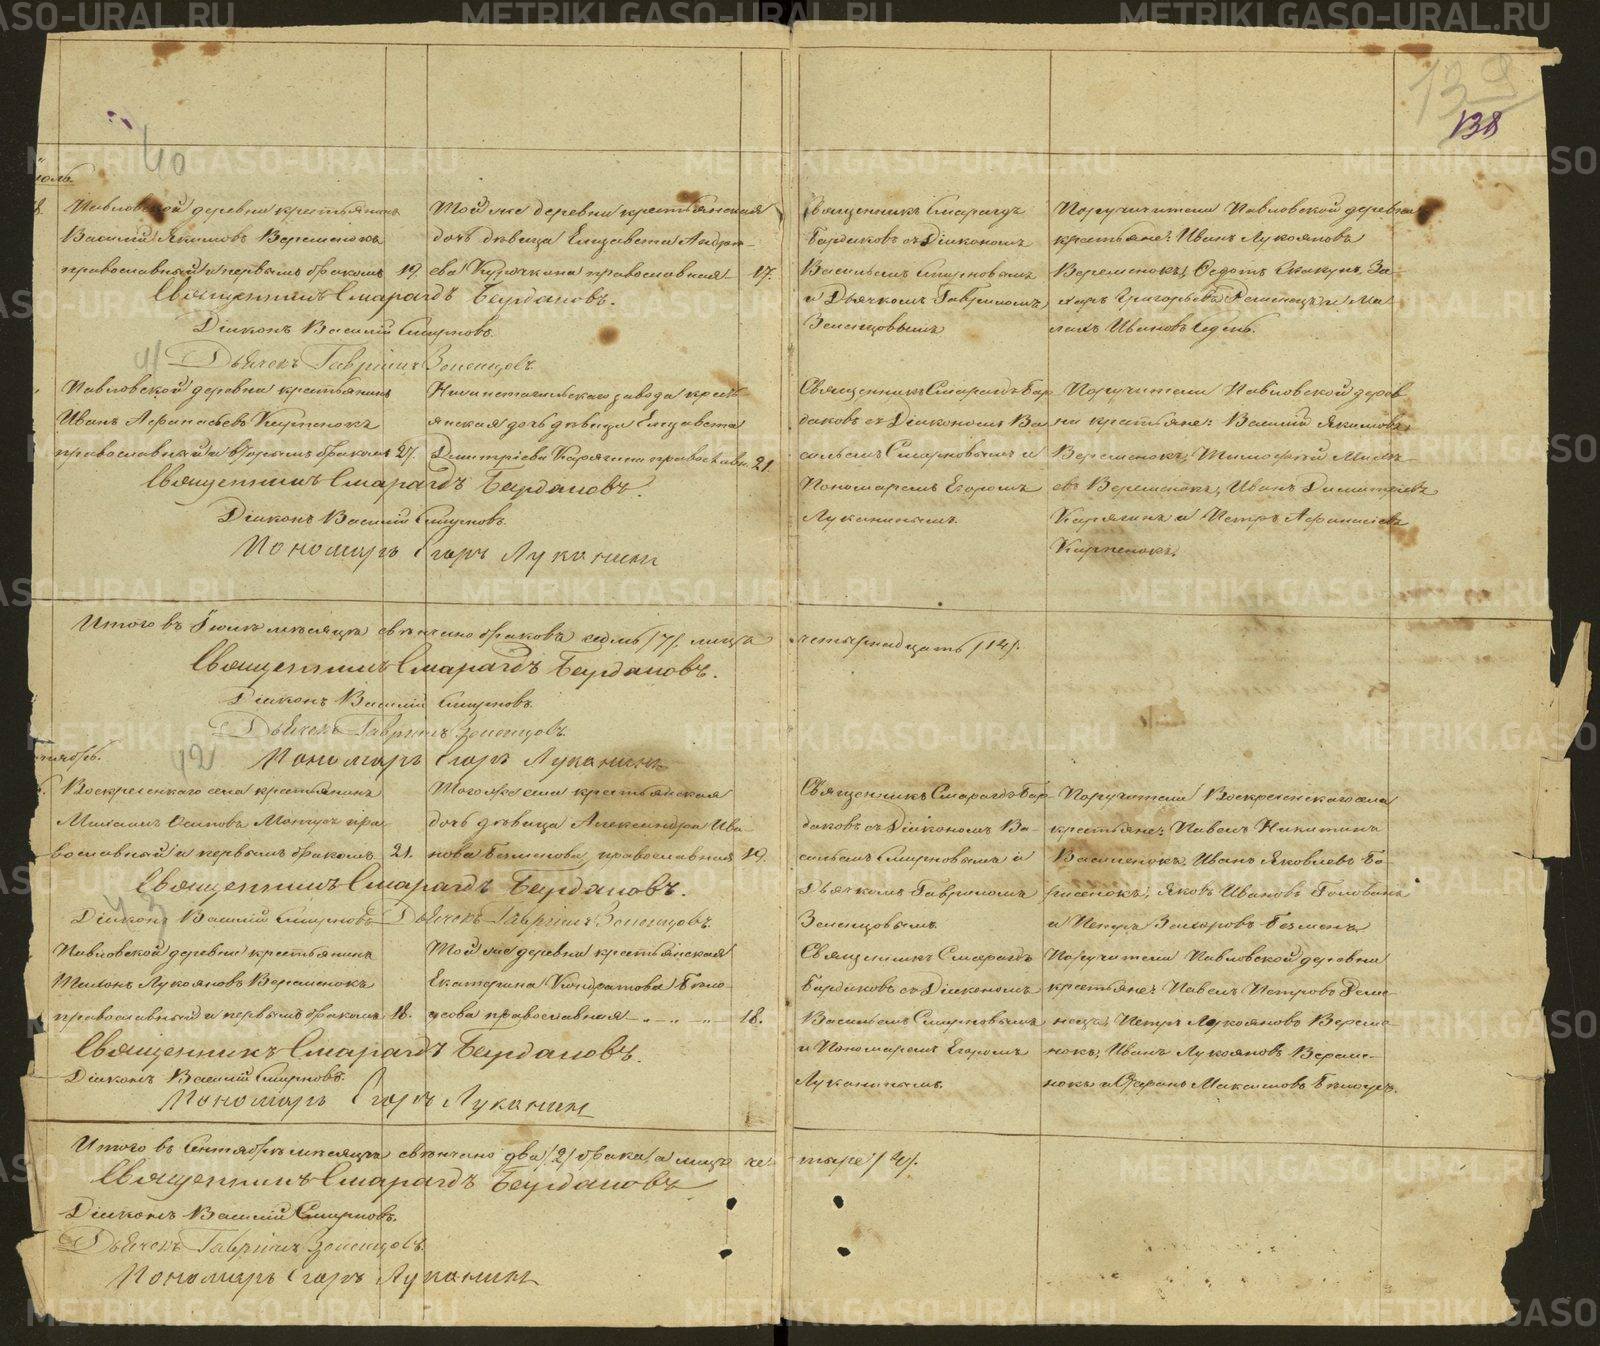 138
40
Павловской деревни крестьянинъ
Василій Якимовъ Веремеюкъ
православный и первымъ бракомъ
19.
Той же деревни крестьянская
дочь дѣвица Елизавета
православная
17.
Священникъ Смарагдъ
Бардаковъ съ Діакономъ
Васильемъ Смирновымъ
и Дьячкомъ Гавриломъ
Зеленцовымъ
Поручители Павловской деревни
крестьяне: Иванъ Лукояновъ
Ѳедотъ За-
харъ Григорьевъ и Ма-
Ивановъ
Священникъ Смарагдъ Бардаковъ.
Діаконъ Василій Смирновъ.
41
Дьячекъ Гавріилъ Зеленцовъ
Павловской деревни крестьянинъ
Иванъ Афанасьевъ
православный и вторымъ бракомъ
27.
Нижнетагильскаго завода кресть-
янская дочь дѣвица Елизавета
Дмитріева Карягина православн.
21
Священникъ Смарагдъ Бар
даковъ съ Діакономъ Ва
сильемъ Смирновымъ и
Пономаремъ Егоромъ
Луканинымъ.
Поручители Павловской дерев
ни крестьяне: Василій Якимовъ
Иванъ Димитріевъ
Карягинъ и Петръ Афанасьевъ
Священникъ Смарагдъ Бардаковъ.
Діаконъ Василій Смирновъ.
Пономарь Егоръ Луканинъ
Итого въ Іюлѣ мѣсяцѣ свѣнчано браковъ семь /7/. лицъ четырнадцать /14/.
Священникъ Смарагдъ Бардаковъ.
Діаконъ Василій Смирновъ.
Дьячекъ Гавріилъ Зеленцовъ.
Пономарь Егоръ Луканинъ
42
Воскресенкаго села крестьянинъ
Михаилъ Осиповъ пра-
вославный и первымъ бракомъ
21.
Того же села крестьянская
дочь дѣвица Александра Ива-
нова православная
19.
Священникъ Смарагдъ Бар-
даковъ съ Діакономъ Ва-
сильемъ Смирновымъ и
Дьячкомъ Гавриломъ
Зеленцовымъ.
Поручители Воскресенскаго села
крестьяне: Павелъ Никитинъ
Иванъ Яковлевъ Бо-
Яковъ Ивановъ
и Петръ Захаровъ
Священникъ Смарагдъ Бардаковъ.
43
Діаконъ Василій Смирновъ Дьячекъ Гавріилъ Зеленцовъ.
Павловской деревни крестьянинъ
Лукояновъ Веремеюкъ
православный и первымъ бракомъ
18.
Той же деревни крестьянская
Екатерина Кондратова Бѣло-
усова православная
18.
Священникъ Смарагдъ
Бардаковъ съ Діакономъ
Васильемъ Смирновымъ
и Пономаремъ Егоромъ
Луканинымъ.
Поручители Павловской деревни
крестьяне: Павелъ Петровъ
Петръ Лукояновъ
Иванъ Лукояновъ
Максимовъ
Священникъ Смарагдъ Бардаковъ.
Діаконъ Василій Смирновъ.
Пономарь Егоръ Луканин
Итого въ Сентябрѣ мѣсяцѣ свѣнчано два /2/ брака, а лицъ че- тыре /4/.
Священникъ Смарагдъ Бардаковъ
Діаконъ Василій Смирновъ.
Дьячекъ Гавріилъ Зеленцовъ.
Пономарь Егоръ Луканин
METRIKI.GASO-URAL.RU